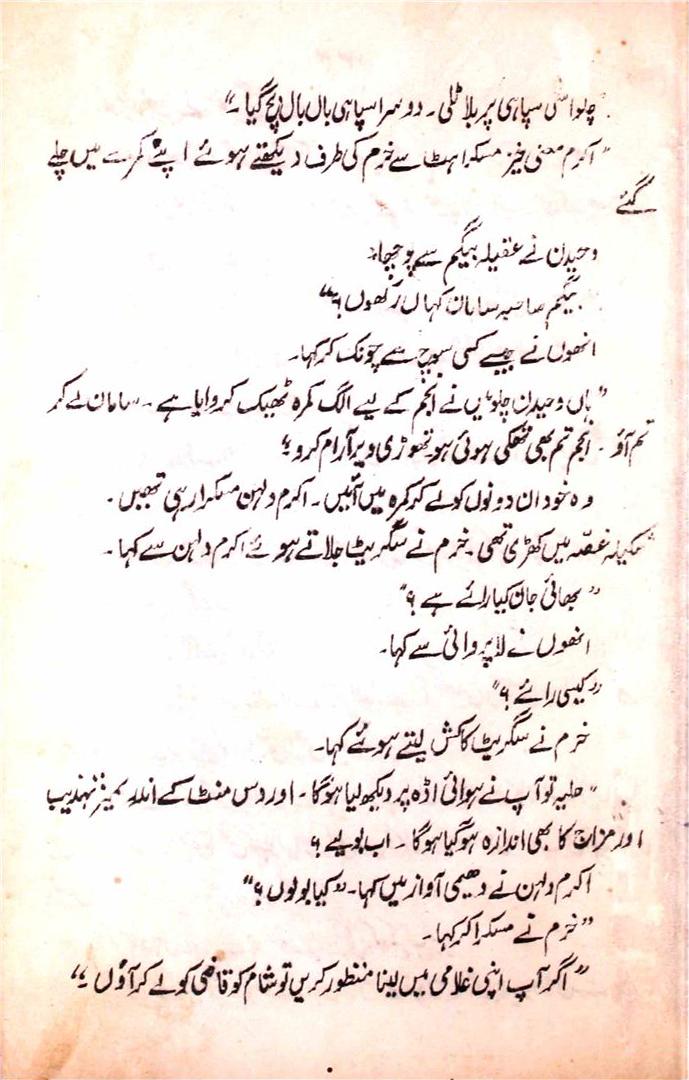 چلو اس سپاہی پر بلا ٹلی۔ دوسرا سپاہی بال بال بچ گیا۔"
"اکرم معنی خیز مسکراہٹ سے خرم کی طرف دیکھتے ہوئے اپنے کمرے میں چلے
گئے
وحیدن نے عقیلہ بیگم سے پوچھا۔
بیگم صاحبہ سامان کہاں رکھوں؟"
انھوں نے جیسے کسی سوچ سے چونک کر کہا۔
"ہاں وحیدن چلو میں نے انجم کے لیے الگ کمرہ ٹھیک کروایا ہے۔ سامان لے کر
تم آؤ۔ انجم تم بھی تھکی ہوئی ہو تھوڑی دیر آرام کرو۔"
وہ خود ان دونوں کو لے کر کمرہ میں آئیں۔ اکرم دلہن مسکرا رہی تھیں۔
شکیلہ غصّہ میں کھڑی تھی۔ خرم نے سگریٹ جلاتے ہوئے اکرم دلہن سے کہا۔
"بھائی جان کیا رائے ہے؟"
انھوں نے لاپروائی سے کہا۔
"کیسی رائے؟"
خرم نے سگریٹ کا کش لیتے ہوئے کہا۔
"حلیہ تو آپ نے ہوائی اڈہ پر دیکھ لیا ہوگا۔ اور دس منٹ کے اندر تمیز تہذیب
اور مزاج کا بھی اندازہ ہوگیا ہوگا۔ اب بولیے؟
اکرم دلہن نے دھیمی آواز میں کہا۔ "کیا بولوں؟"
"خرم نے مسکرا کر کہا۔
"اگر آپ اپنی غلامی میں لینا منظور کریں تو شام کو قاضی کو لے کر آؤں۔"